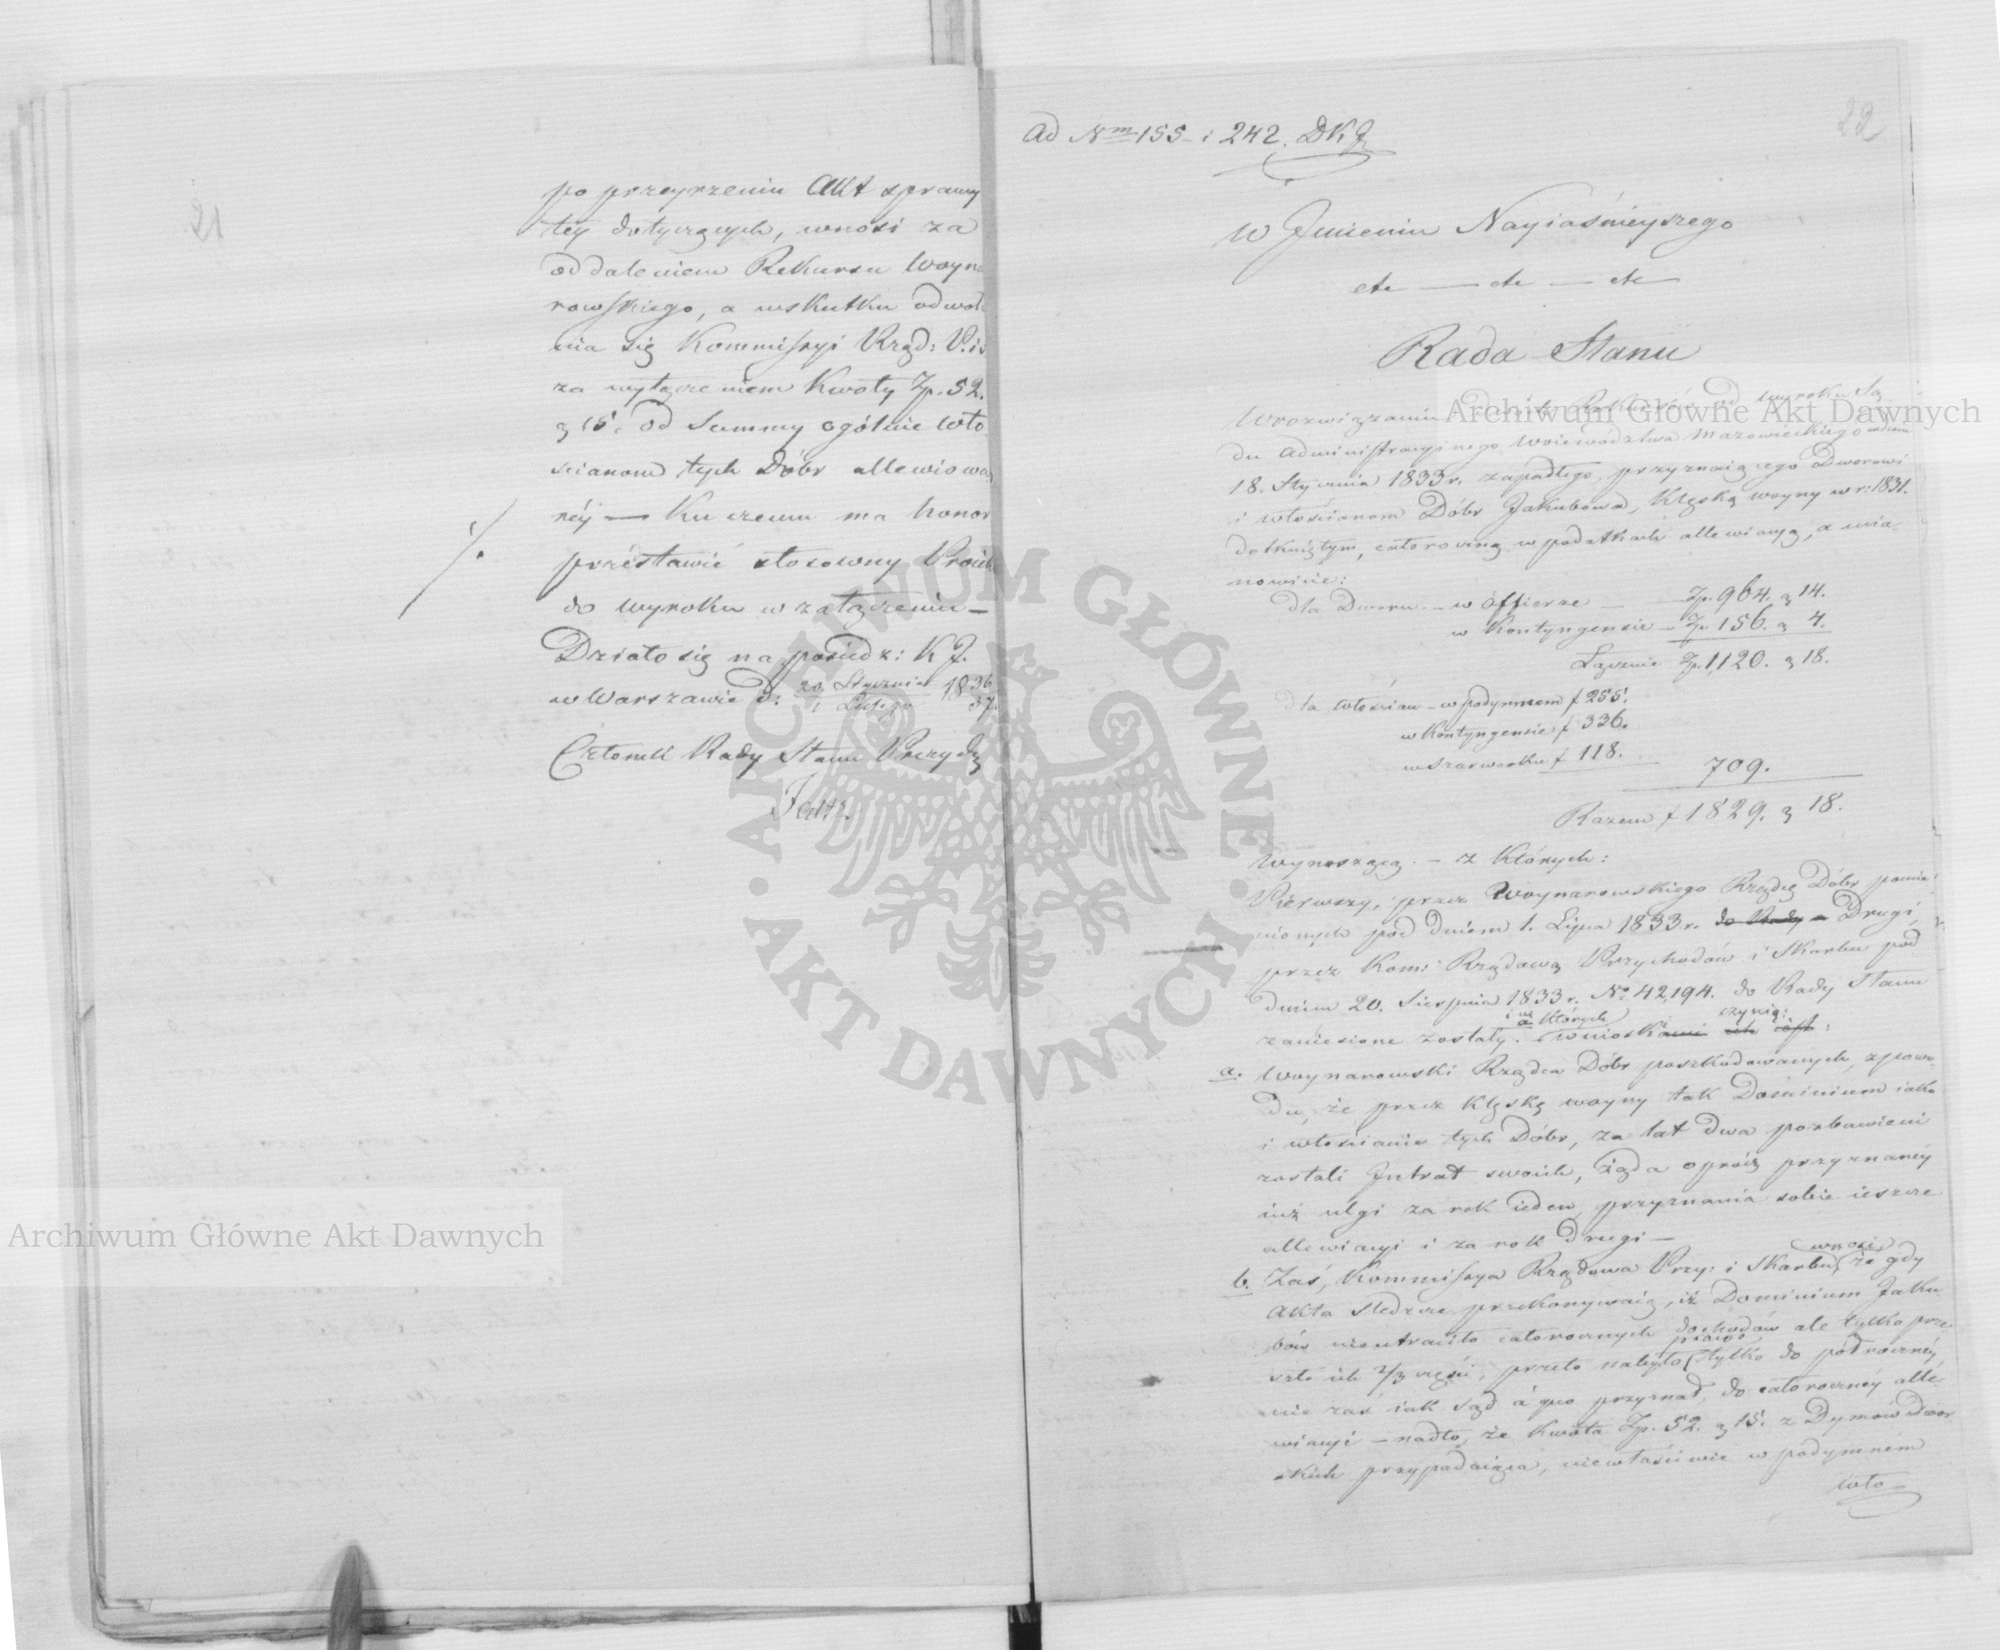 po przeyrzeniu Akt sprawy
tey dotyczących, wnosi za
oddaleniem Rekursu Woyna
rowskiego, a wskutku odwoła
nia się Kommissyi Rząd: P. i S
za wyłączeniem kwoty Zp. 52.
g 15. od Summy ogólnie wło
scianom tych Dóbr allewiowa
néy — Ku czemu ma honor
przedstawić stosowny Proiekt
do wyroku w załączeniu —
Działo się na posiedz: K J.
w Warszawie d: 20 Stycznia / 1 Lutego 1836 / 37.
Członek Rady Stanu Prezyduj
22
Ad Nm 155 i 242. DKJ
W Jmieniu Nayiaśnieyszego
etc — etc — etc —
Rada Stanu
W rozwiązaniu Rekursów od wyroku Są
du Administracyinego Woiewództwa Mazowieckiego w dniu
18. Stycznia 1833 r. zapadłego, przyznaiącego Dworowi
i włościanom Dóbr Jakubowa, Klęską woyny w r: 1831.
dotkniętym, całoroczną w podatkach allewiacyą, a mia
nowicie:
dla Dworu — w offierze — Zp. 964. g 14.
w Kontyngensie — Zp. 156. g 4.
Łącznie Zp. 1,120. g 18.
dla włościan — w podymnem f 255.
w Kontyngensie f 336.
w Szarwarku f 118.
709.
Razem f 1829. g 18.
wynoszącą. — z których:
Pierwszy, przez Woynarowskiego Rządcę Dóbr pomie
nionych pod dniem 1. Lipca 1833 r. do Rady — Drugi,
przez Kom: Rządową Przychodów i Skarbu pod
dniem 20. Sierpnia 1833 r. No 42,194. do Rady Stanu
i w których czynią:
zaniesione zostały. wnioski
a. Woynarowski Rządca Dóbr poszkodowanych, zpowo
du, że przez klęskę woyny tak Dominium iako
i włościanie tych Dóbr, za lat dwa pozbawieni
zostali Jntrat swoich, żąda oprócz przyznanéy
iuż ulgi za rok ieden, przyznania sobie ieszcze
allewiacyi i za rok Drugi —
wnosi
b. Zaś, Kommissya Rządowa Przy: i Skarbu, że gdy
Akta sledcze przekonywaią, iż Dominium Jaku
bów nieutraciło całorocznych dochodów ale tylko prze
prawo
szło ich 2/3 części, przeto nabyło tylko do półrocznéy
nie zaś iak Sąd á quo przyznał, do całorocznéy alle
wiacyi — nadto, że kwota Zp. 52. g 15. z Dymów Dwor
skich przypadaiąca, niewłaściwie w podymném
wło-
Archiwum Główne Akt Dawnych
Archiwum Główne Akt Dawnych
ARCHIWUM GŁÓWNE · AKT DAWNYCH ·